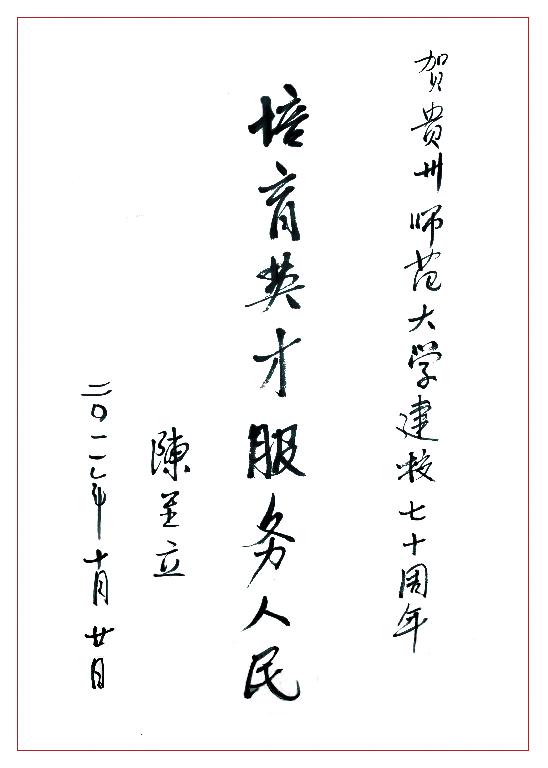 贺貴州师范大学建校七十周年
培育英才服务人民
陳至立
二〇一一年十月廿日